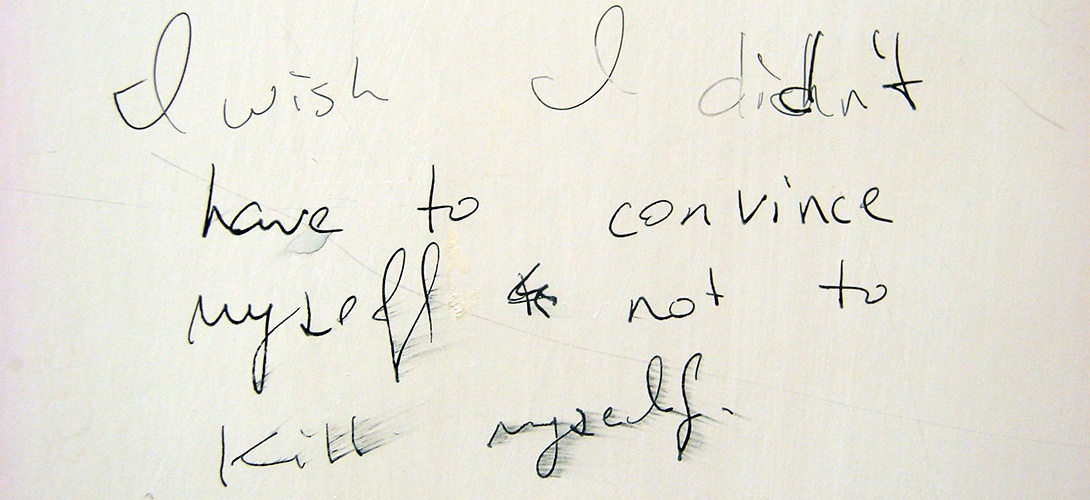 I wish I didn't
have to convince
myself not to
Kill myself.